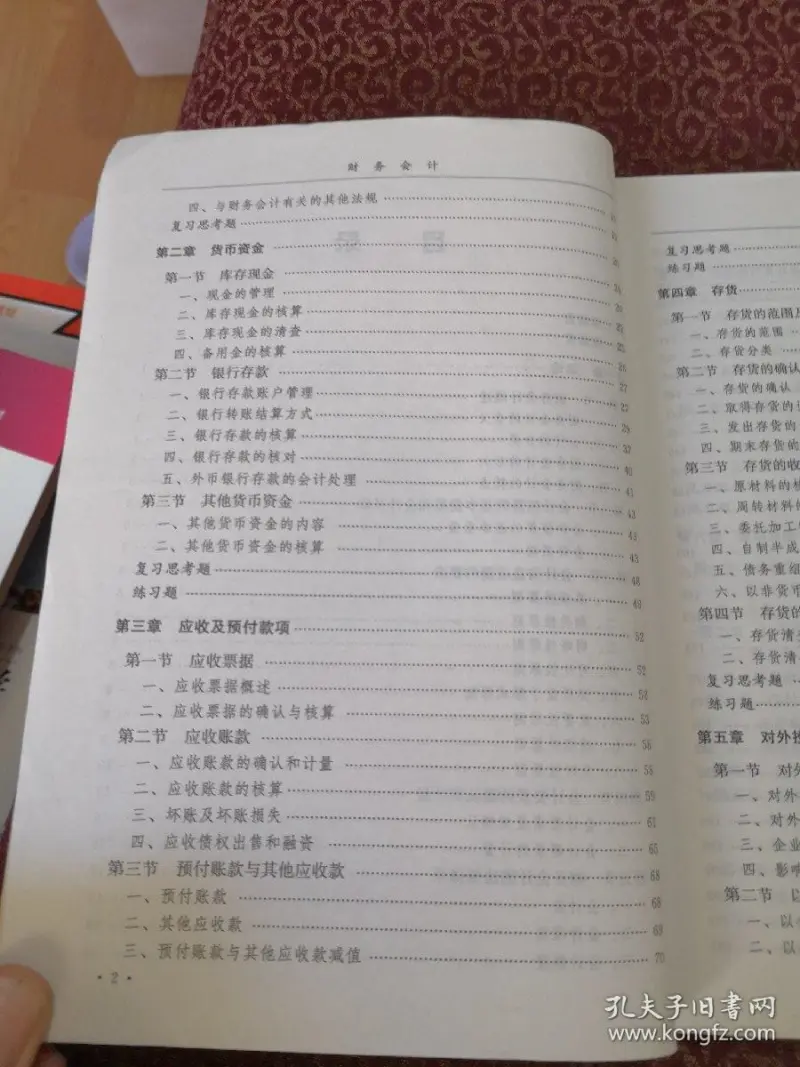 财务会计
四、与财务会计有关的其他法规
复习思考题
第二章 货币资金
第一节 库存现金
一、现金的管理
二、库存现金的核算
三、库存现金的清查
四、备用金的核算
第二节 银行存款
一、银行存款账户管理
二、银行转账结算方式
三、银行存款的核算
四、银行存款的核对 40
五、外币银行存款的会计处理 41
第三节 其他货币资金 43
一、其他货币资金的内容
二、其他货币资金的核算
复习思考题 48
练习题 49
第三章 应收及预付款项 52
第一节 应收票据 52
一、应收票据概述 52
二、应收票据的确认与核算 53
第二节 应收账款 58
一、应收账款的确认和计量 58
二、应收账款的核算 59
三、坏账及坏账损失 61
四、应收债权出售和融资 65
第三节 预付账款与其他应收款 68
一、预付账款 68
二、其他应收款 69
三、预付账款与其他应收款减值 70
· 2 ·
复习思考题
练习题
第四章 存货
第一节 存货的范围
一、存货的范围
二、存货分类
第二节 存货的确认
一、存货的确认
二、取得存货的
三、发出存货的
四、期末存货的
第三节 存货的收
一、原材料的核
二、周转材料的
三、委托加工
四、自制半成
五、债务重组
六、以非货币
第四节 存货的
一、存货清
二、存货清
复习思考题
练习题
第五章 对外投
第一节 对外
一、对外
二、对外
三、企业
四、影响
第二节 以
一、以
二、以
孔夫子旧书网
www.kongfz.com